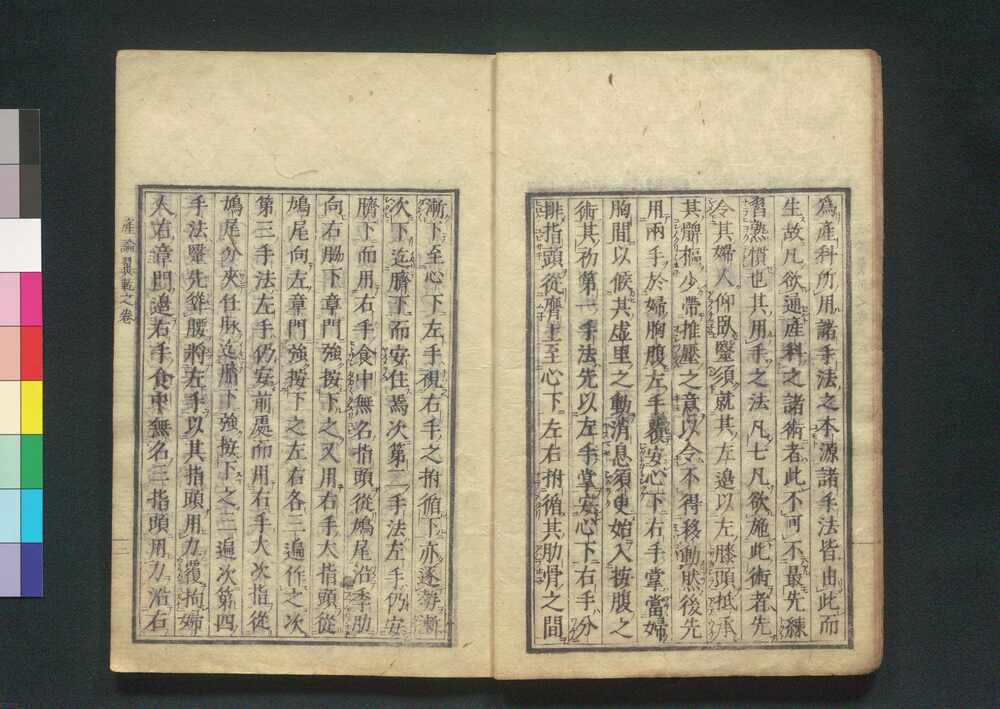 爲産科所用諸手法之本源諸手法皆由此而
生故凡欲通産科之諸術者此不可不最先練
習熟慣也其用手之法凡七凡欲施此術者先
令其婦人仰臥毉須就其左邉以左膝頭抵承
其髀樞少帶推壓之意以令不得移動然後先
用兩手於婦胸腹左手覆安心下右手掌當婦
胸間以候其虚里之動消息須臾始入按腹之
術其初第一手法先以左手掌安心下右手分
排指頭從臍上至心下左右拊循其肋骨之間
漸下至心下左手視右手之拊循下亦逐漸
次下迄臍下而安住焉次第二手法左手仍安
臍下而用右手食中無名指頭從鳩尾沿季肋
向右脇下章門強按下之又用右手大指頭從
鳩尾向左章門強按下之左右各三遍作之次
第三手法左手仍安前處而用右手大次指從
鳩尾分夾任脉迄臍下強按下之三遍次第四
手法毉先聳腰將左手以其指頭用力覆拘婦
人右章門邉右手食中無名三指頭用力沿右
産論翼乾之卷
二